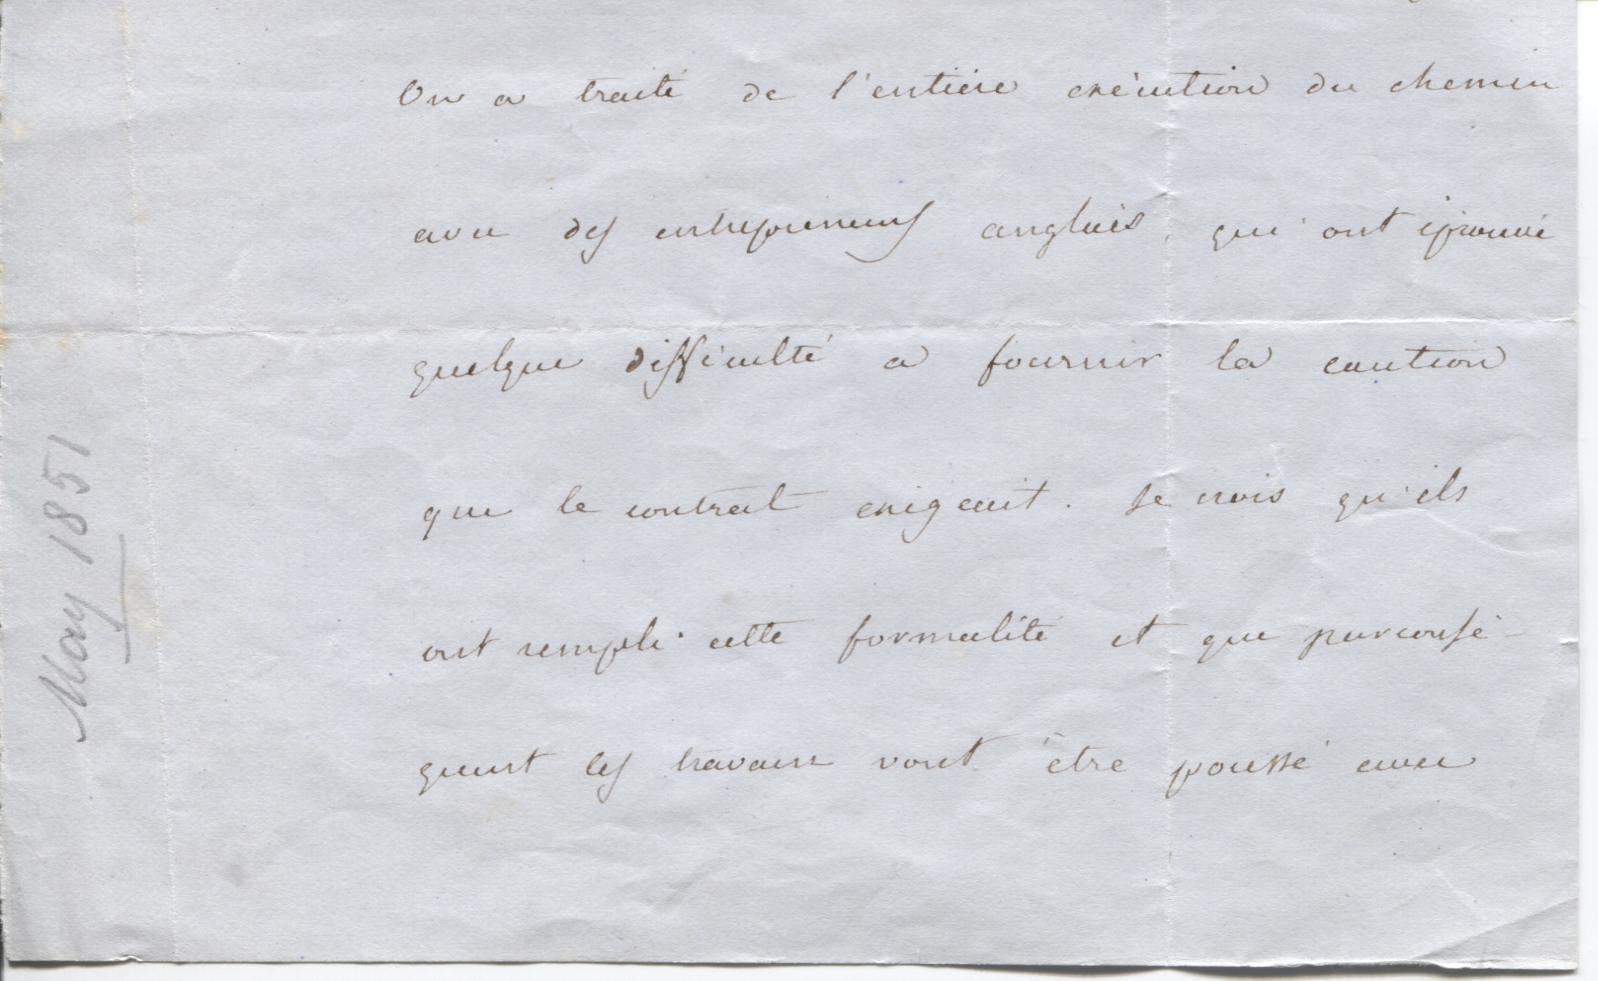 On a traité de l'entière exécution du chemin
avec des entrepreneurs anglais, qui ont éprouvé
quelque difficulté a fournir la caution
que le contrat exigeait. Je crois qu'ils
ont rempli cette formalité et que par consé-
quent les travaux vont être poussé avec
May 1851